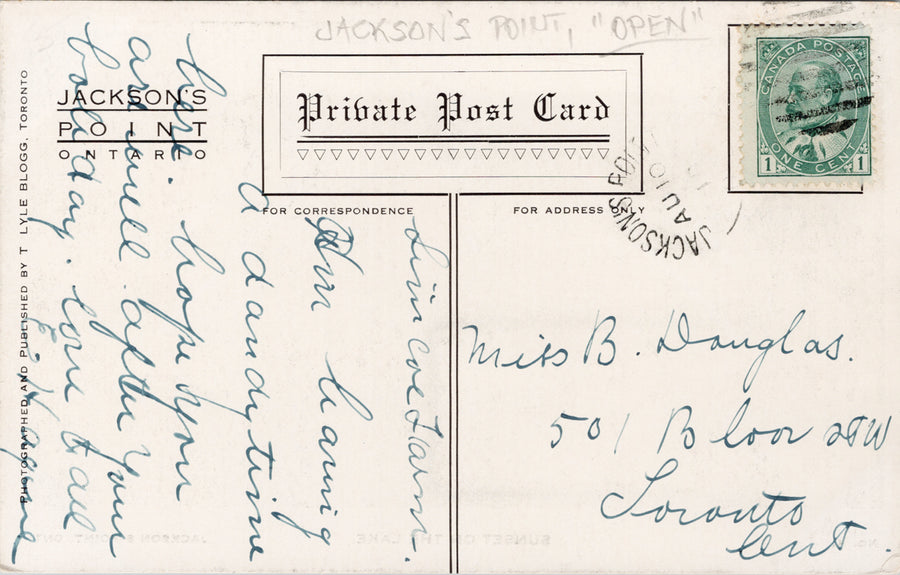 JACKSON'S POINT, "OPEN"
JACKSON'S
POINT
ONTARIO
Private Post Card
FOR CORRESPONDENCE
FOR ADDRESS ONLY
CANADA POSTAGE
1 ONE CENT 1
JACKSON'S POINT
AU 10
PHOTOGRAPHED AND PUBLISHED BY T LYLE BLOGG, TORONTO
Farm.
Am having
a dandy time
here. hope you
are well after your
holiday. love to all
Miss B. Douglas.
501 Bloor st W
Toronto
Ont.
SUNSET ON THE LAKE,
JACKSON'S POINT, ONT.
NO.